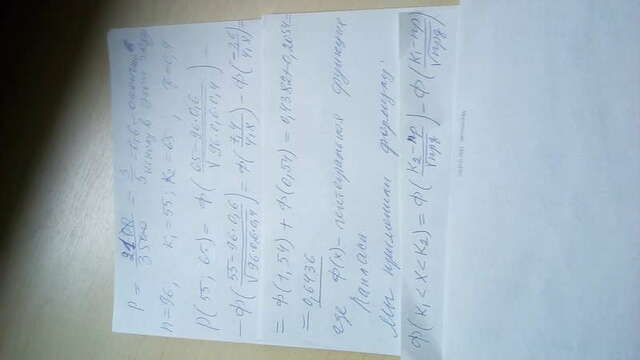 p = 2100/3500 = 3/5 = 0,6 -
n = 96, k₁ = 55; k₂ = 65, q = 0,4
P(55, 65) = Ф((65-96·0,6)/√(96·0,6·0,4)) -
- Ф((55-96·0,6)/√(96·0,6·0,4)) = Ф(7,4/4,8) - Ф(-2,6/4,8) =
= Ф(1,54) + Ф(0,54) = 0,4382 + 0,2054 =
= 0,6436
где Ф(x) - интегральная функция
Лапласа
Мы применили формулу:
Ф(k₁ < X < k₂) = Ф((k₂-np)/√npq) - Ф((k₁-np)/√npq)